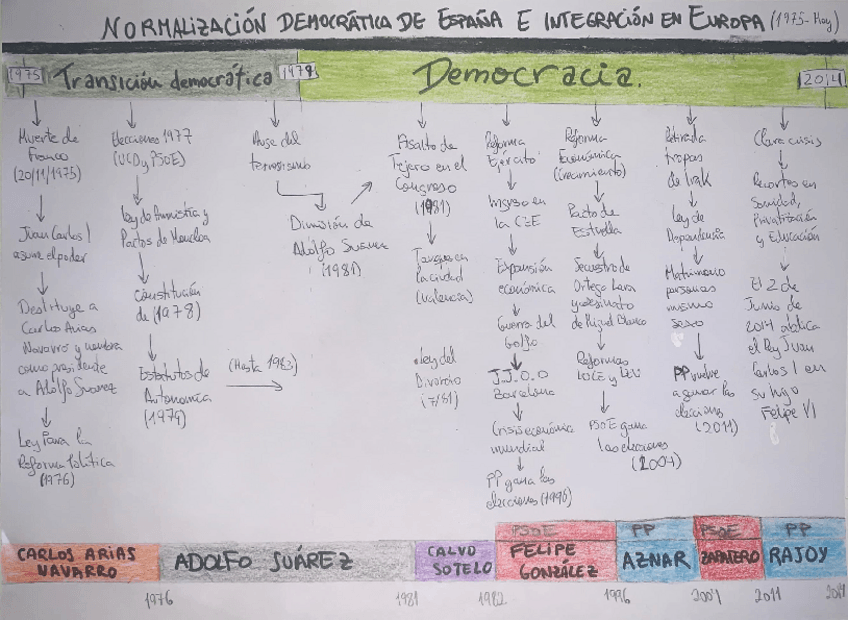 NORMALIZACIÓN DEMOCRÁTICA DE ESPAÑA E INTEGRACIÓN EN EUROPA (1975-Hoy)
1975
Transición democrática
1978
Democracia.
2014
Muerte de
Franco
(20/11/1975)
Juan Carlos I
asume el poder
Destituye a
Carlos Arias
Navarro y nombra
como presidente
a Adolfo Suarez
Ley Para la
Reforma Política
(1976)
Elecciones 1977
(UCD y PSOE)
Ley de Amnistía y
Pactos de Moncloa
Constitución
de (1978)
Estatutos de
Autonomía
(1979)
(Hasta 1983)
del
terrorismo
Dimisión de
Adolfo Suarez
(1981)
Asalto de
Tejero en el
Congreso
(1981)
Tanques en
la ciudad
(Valencia)
Ley del
Divorcio
(7/81)
Reforma
Ejército
Ingreso en
la CEE
Expansión
económica
Guerra del
Golfo
J.J.O.O
Barcelona
Crisis económica
mundial
PP gana las
elecciones (1996)
Reforma
Económica
(crecimiento)
Pacto de
Estrella
Secuestro de
Ortega Lara
y asesinato
de Miguel Blanco
Reformas
LOCE y
PSOE gana
las elecciones
(2004)
Retirada
tropas
de Irak
Ley de
Dependencia
Matrimonio
personas
mismo
sexo
PP vuelve
a ganar las
elecciones
(2011)
Clara crisis
Recortes en
Sanidad,
Privatización
y Educación
El 2 de
Junio de
2014 abdica
el Rey Juan
Carlos I en
su hijo
Felipe VI
CARLOS ARIAS
NAVARRO
ADOLFO SUÁREZ
CALVO
SOTELO
PSOE
FELIPE
GONZÁLEZ
PP
AZNAR
PSOE
ZAPATERO
PP
RAJOY
1976
1981
1982
1996
2004
2011